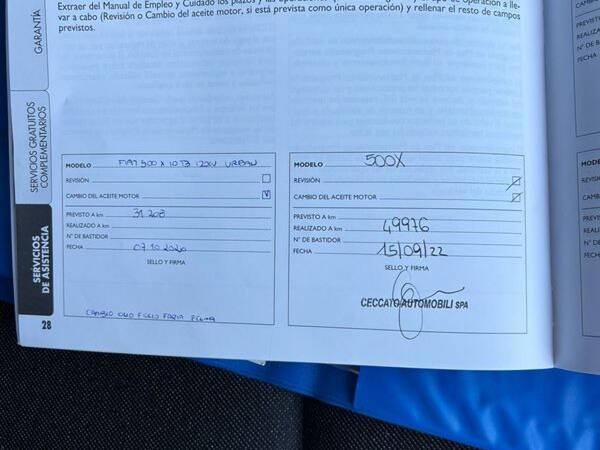 Extraer del Manual de Empleo y Cuidado los plazos y las operaciones
var a cabo (Revisión o Cambio del aceite motor, si está prevista como única operación) y rellenar el resto de campos
previstos.
GARANTÍA
SERVICIOS GRATUITOS
COMPLEMENTARIOS
SERVICIOS
DE ASISTENCIA
28
MODELO FIAT 500 X 1.0 T3 120CV URBAN
REVISIÓN
CAMBIO DEL ACEITE MOTOR
PREVISTO A km 31 208
REALIZADO A km
N° DE BASTIDOR
FECHA 07.10.2020
SELLO Y FIRMA
CAMBIO OLIO
MODELO 500X
REVISIÓN
CAMBIO DEL ACEITE MOTOR
PREVISTO A km
REALIZADO A km 49976
N° DE BASTIDOR
FECHA 15/09/22
SELLO Y FIRMA
CECCATO AUTOMOBILI SPA